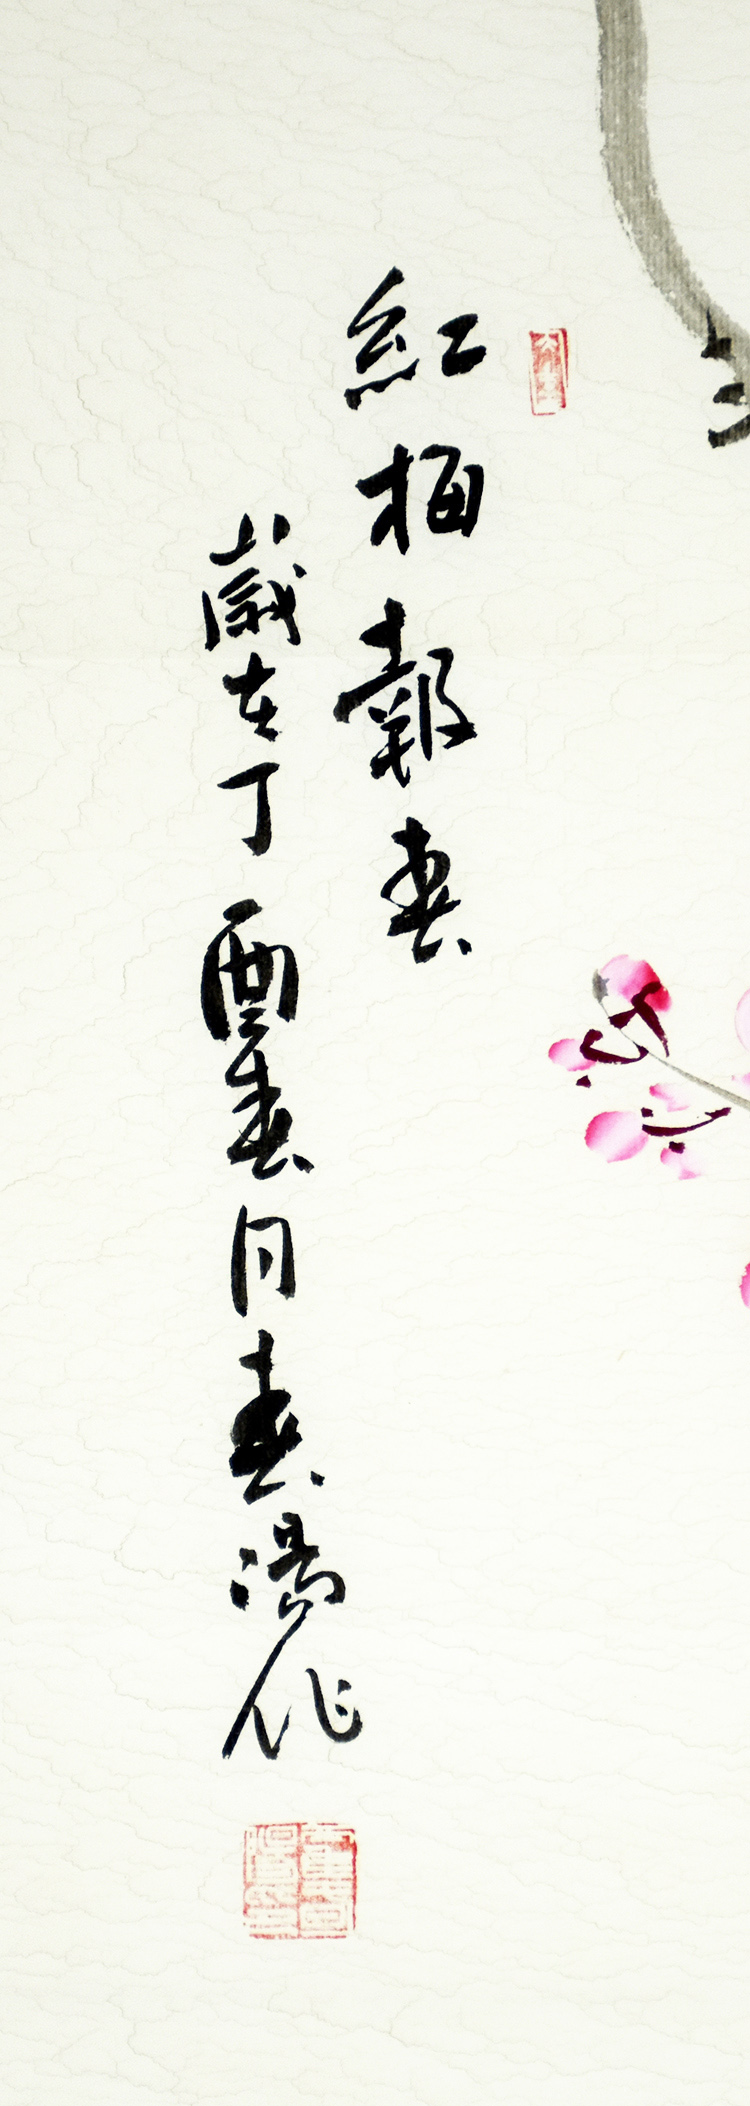 紅梅報春
歲在丁酉春月春湯作